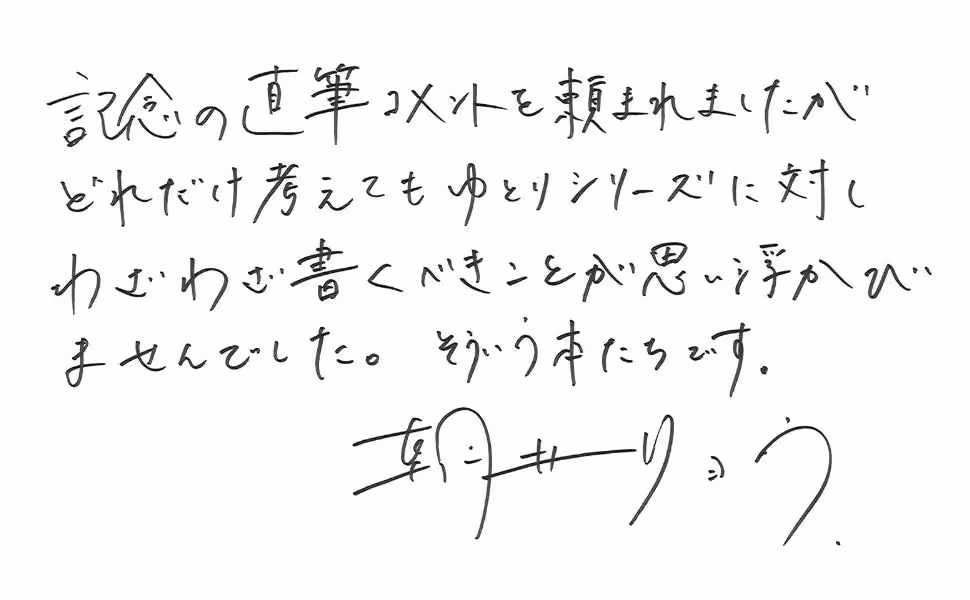 記念の直筆コメントを頼まれましたが
どれだけ考えてもゆとりシリーズに対し
わざわざ書くべきことが思い浮かび
ませんでした。そういう本たちです.
朝井リョウ